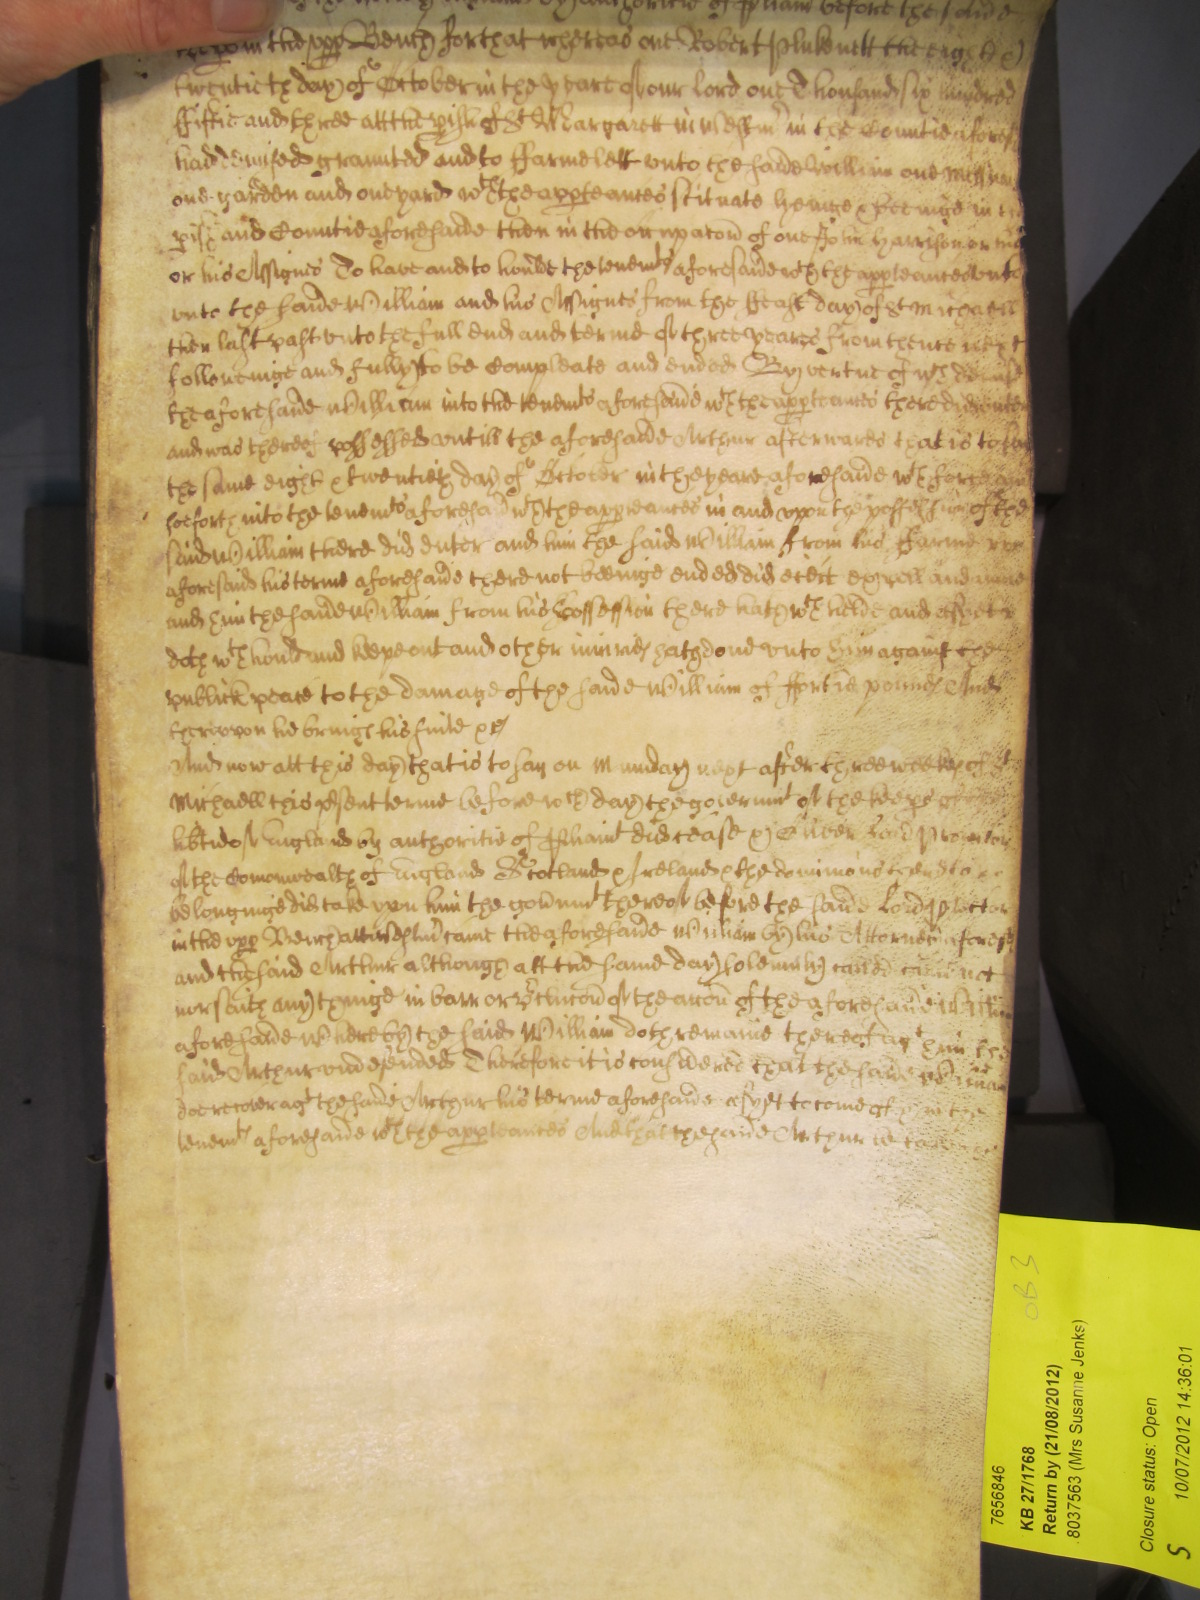 of the liberty of England by authoritie of Pliam before the saide
in the upp Bench for that whereas one Robert Plukenett the eight &
twentieth day of October in the yeare of our lord one Thousand six hundred
ffiftie and three att the pish of St Margarett in Westmr in the Countie afores
had demised graunted and to ffarme lett unto the saide William one messua
one garden and one yard wth the appteances scituate lyeinge & beeinge in the
pish and Countie aforesaide then in the occupacon of one John Harrison or his
or his Assignes To have and to hould the tenemts aforesaide wth the appteances unto
unto the saide William and his Assignes from the ffeast day of St Michaell
then last past unto the full end and terme of three yeares from thence next
followeinge and fully to be Compleate and ended By vertue of wch demise
the aforesaide William into the tenemts aforesaide wth the appteances there did enter
and was thereof possessed untill the aforesaide Arthur afterwards that is to say
the same eight & twentieth day of October in the yeare aforesaide wth force and
soeforth into the tenemts aforesaid wth the appteances in and upon the possession of the
said William there did enter and him the said William from his ffarme
aforesaid his terme aforesaide there not beeinge ended did eiect expell and
and him the saide William from his Possession there hath wth helde and as yet
doth wth hould and keepe out and other iniuries hath done unto him against the
publick peace to the damage of the saide William of ffortie pounds And
thereupon he brings his suite &c
And now att this day that is to say on Munday next after three weekes of St
Michaell this psent terme before wch day the governmt of the keeps of the
libtie of England by authoritie of Pliamt did cease & Oliver Lord Protector
of the Comonwealth of England Scotland & Ireland & the dominions thereto
belonginge did take upon him the govmt thereof before the saide Lord Ptector
in the upp Bench att Westmr came the aforesaide William by his Attorney aforesd
and the said Arthur although att the same day solemnly called came not
nor saith any thinge in barr or pclucon of the accon of the aforesaide William
aforesaide Whereby the said William doth remaine thereof agt him the
said Arthur undefended Therefore it is considered that the saide William
doe recover agt the saide Arthur his terme aforesaide as yet to come of & in the
tenemts aforesaide wth the appteances And that the saide Arthur be
7656846
KB 27/1768
Return by (21/08/2012)
8037563 (Mrs Susanne Jenks)
Closure status: Open
10/07/2012 14:36:01
S
OB 3